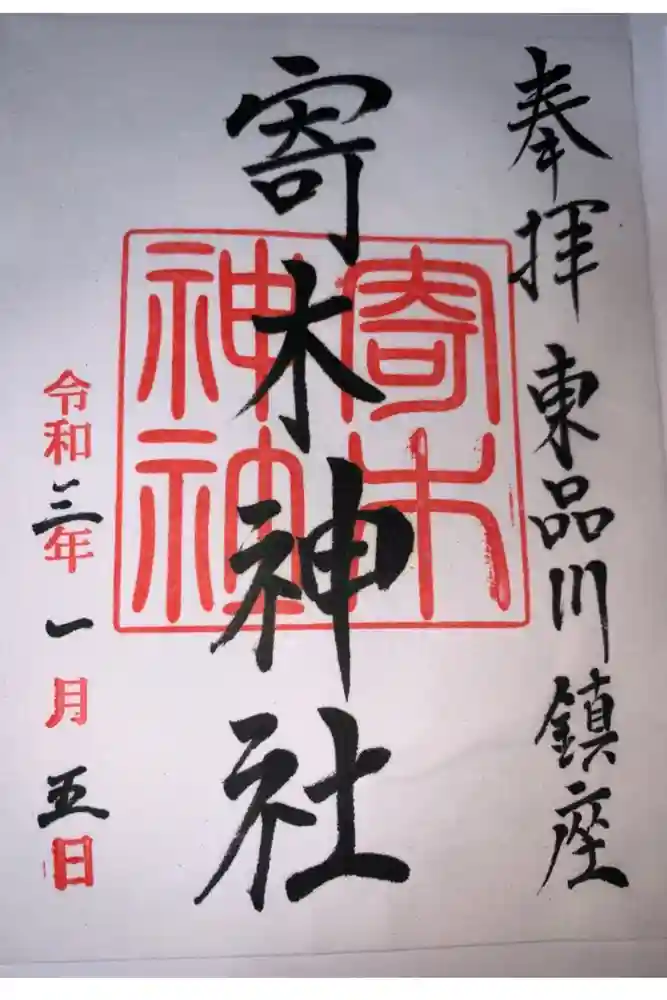 奉拝 東品川鎮座
寄木神社
寄木
神社
令和三年一月五日